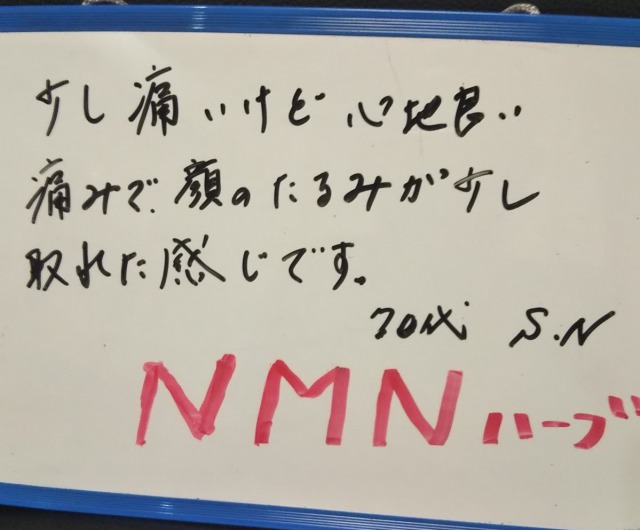 少し痛いけど心地良い
痛みで、顔のたるみが少し
取れた感じです。
70代 S.N
NMNハーブ